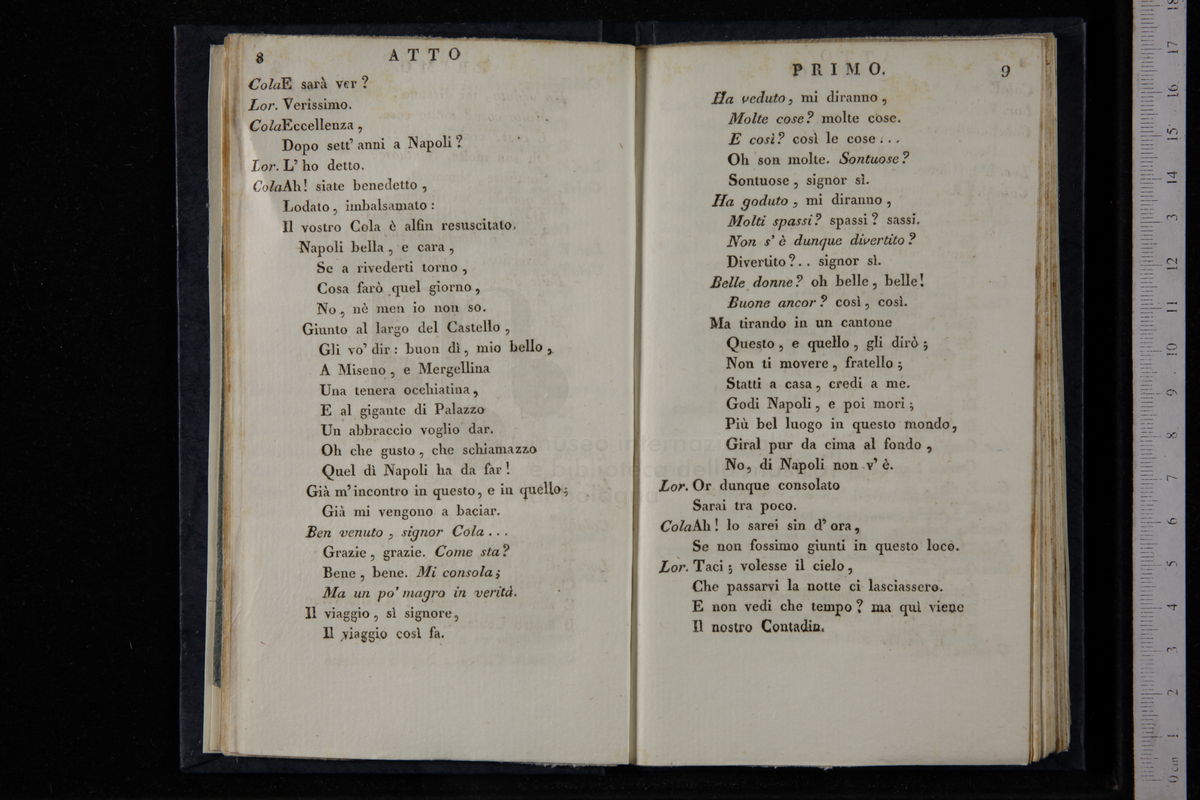 8 ATTO
Cola E sarà ver?
Lor. Verissimo.
Cola Eccellenza,
Dopo sett' anni a Napoli?
Lor. L' ho detto.
Cola Ah! siate benedetto,
Lodato, imbalsamato:
Il vostro Cola è alfin resuscitato.
Napoli bella, e cara,
Se a rivederti torno,
Cosa farò quel giorno,
No, nè men io non so.
Giunto al largo del Castello,
Gli vo' dir: buon dì, mio bello,
A Miseno, e Mergellina
Una tenera occhiatina,
E al gigante di Palazzo
Un abbraccio voglio dar.
Oh che gusto, che schiamazzo
Quel dì Napoli ha da far!
Già m' incontro in questo, e in quello;
Già mi vengono a baciar.
Ben venuto, signor Cola...
Grazie, grazie. Come sta?
Bene, bene. Mi consola;
Ma un po' magro in verità.
Il viaggio, sì signore,
Il viaggio così fa.
PRIMO. 9
Ha veduto, mi diranno,
Molte cose? molte cose.
E così? così le cose...
Oh son molte. Sontuose?
Sontuose, signor sì.
Ha goduto, mi diranno,
Molti spassi? spassi? sassi.
Non s' è dunque divertito?
Divertito?.. signor sì.
Belle donne? oh belle, belle!
Buone ancor? così, così.
Ma tirando in un cantone
Questo, e quello, gli dirò;
Non ti movere, fratello;
Statti a casa, credi a me.
Godi Napoli, e poi mori;
Più bel luogo in questo mondo,
Giral pur da cima al fondo,
No, di Napoli non v' è.
Lor. Or dunque consolato
Sarai tra poco.
Cola Ah! lo sarei sin d' ora,
Se non fossimo giunti in questo loco.
Lor. Taci; volesse il cielo,
Che passarvi la notte ci lasciassero.
E non vedi che tempo? ma quì viene
Il nostro Contadin.
museo interna
e biblioteca della
bologna
0 cm 1 2 3 4 5 6 7 8 9 10 11 12 13 14 15 16 17 18